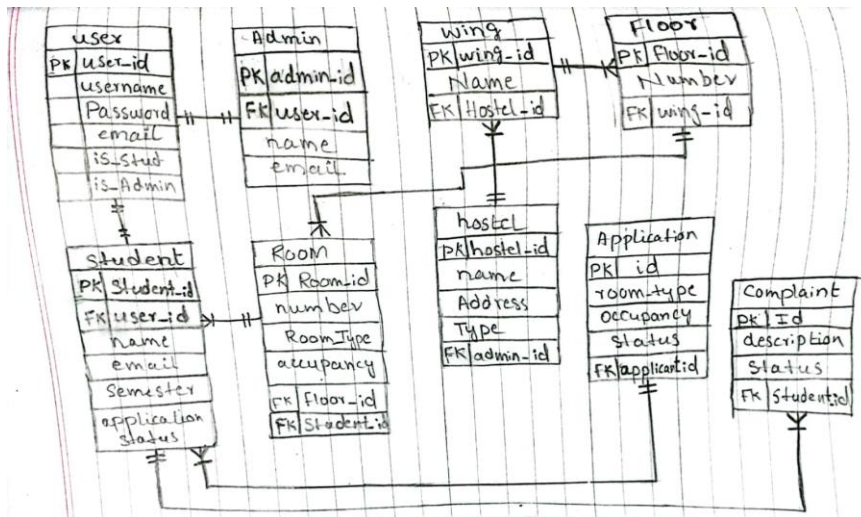 user
PK user_id
username
Password
email
is_Stud
is_Admin
Admin
PK admin-id
FK user-id
name
email
Wing
PK wing-id
Name
FK Hostel-id
Floor
PK Floor-id
Number
FK wing-id
Student
PK Student_id
FK user_id
name
email
Semester
application
status
Room
PK Room-id
number
Room Type
occupancy
FK Floor-id
FK Student_id
hostel
PK hostel-id
name
Address
Type
FK admin-id
Application
PK id
room-type
occupancy
Status
FK applicantid
Complaint
PK Id
description
Status
FK Studentid